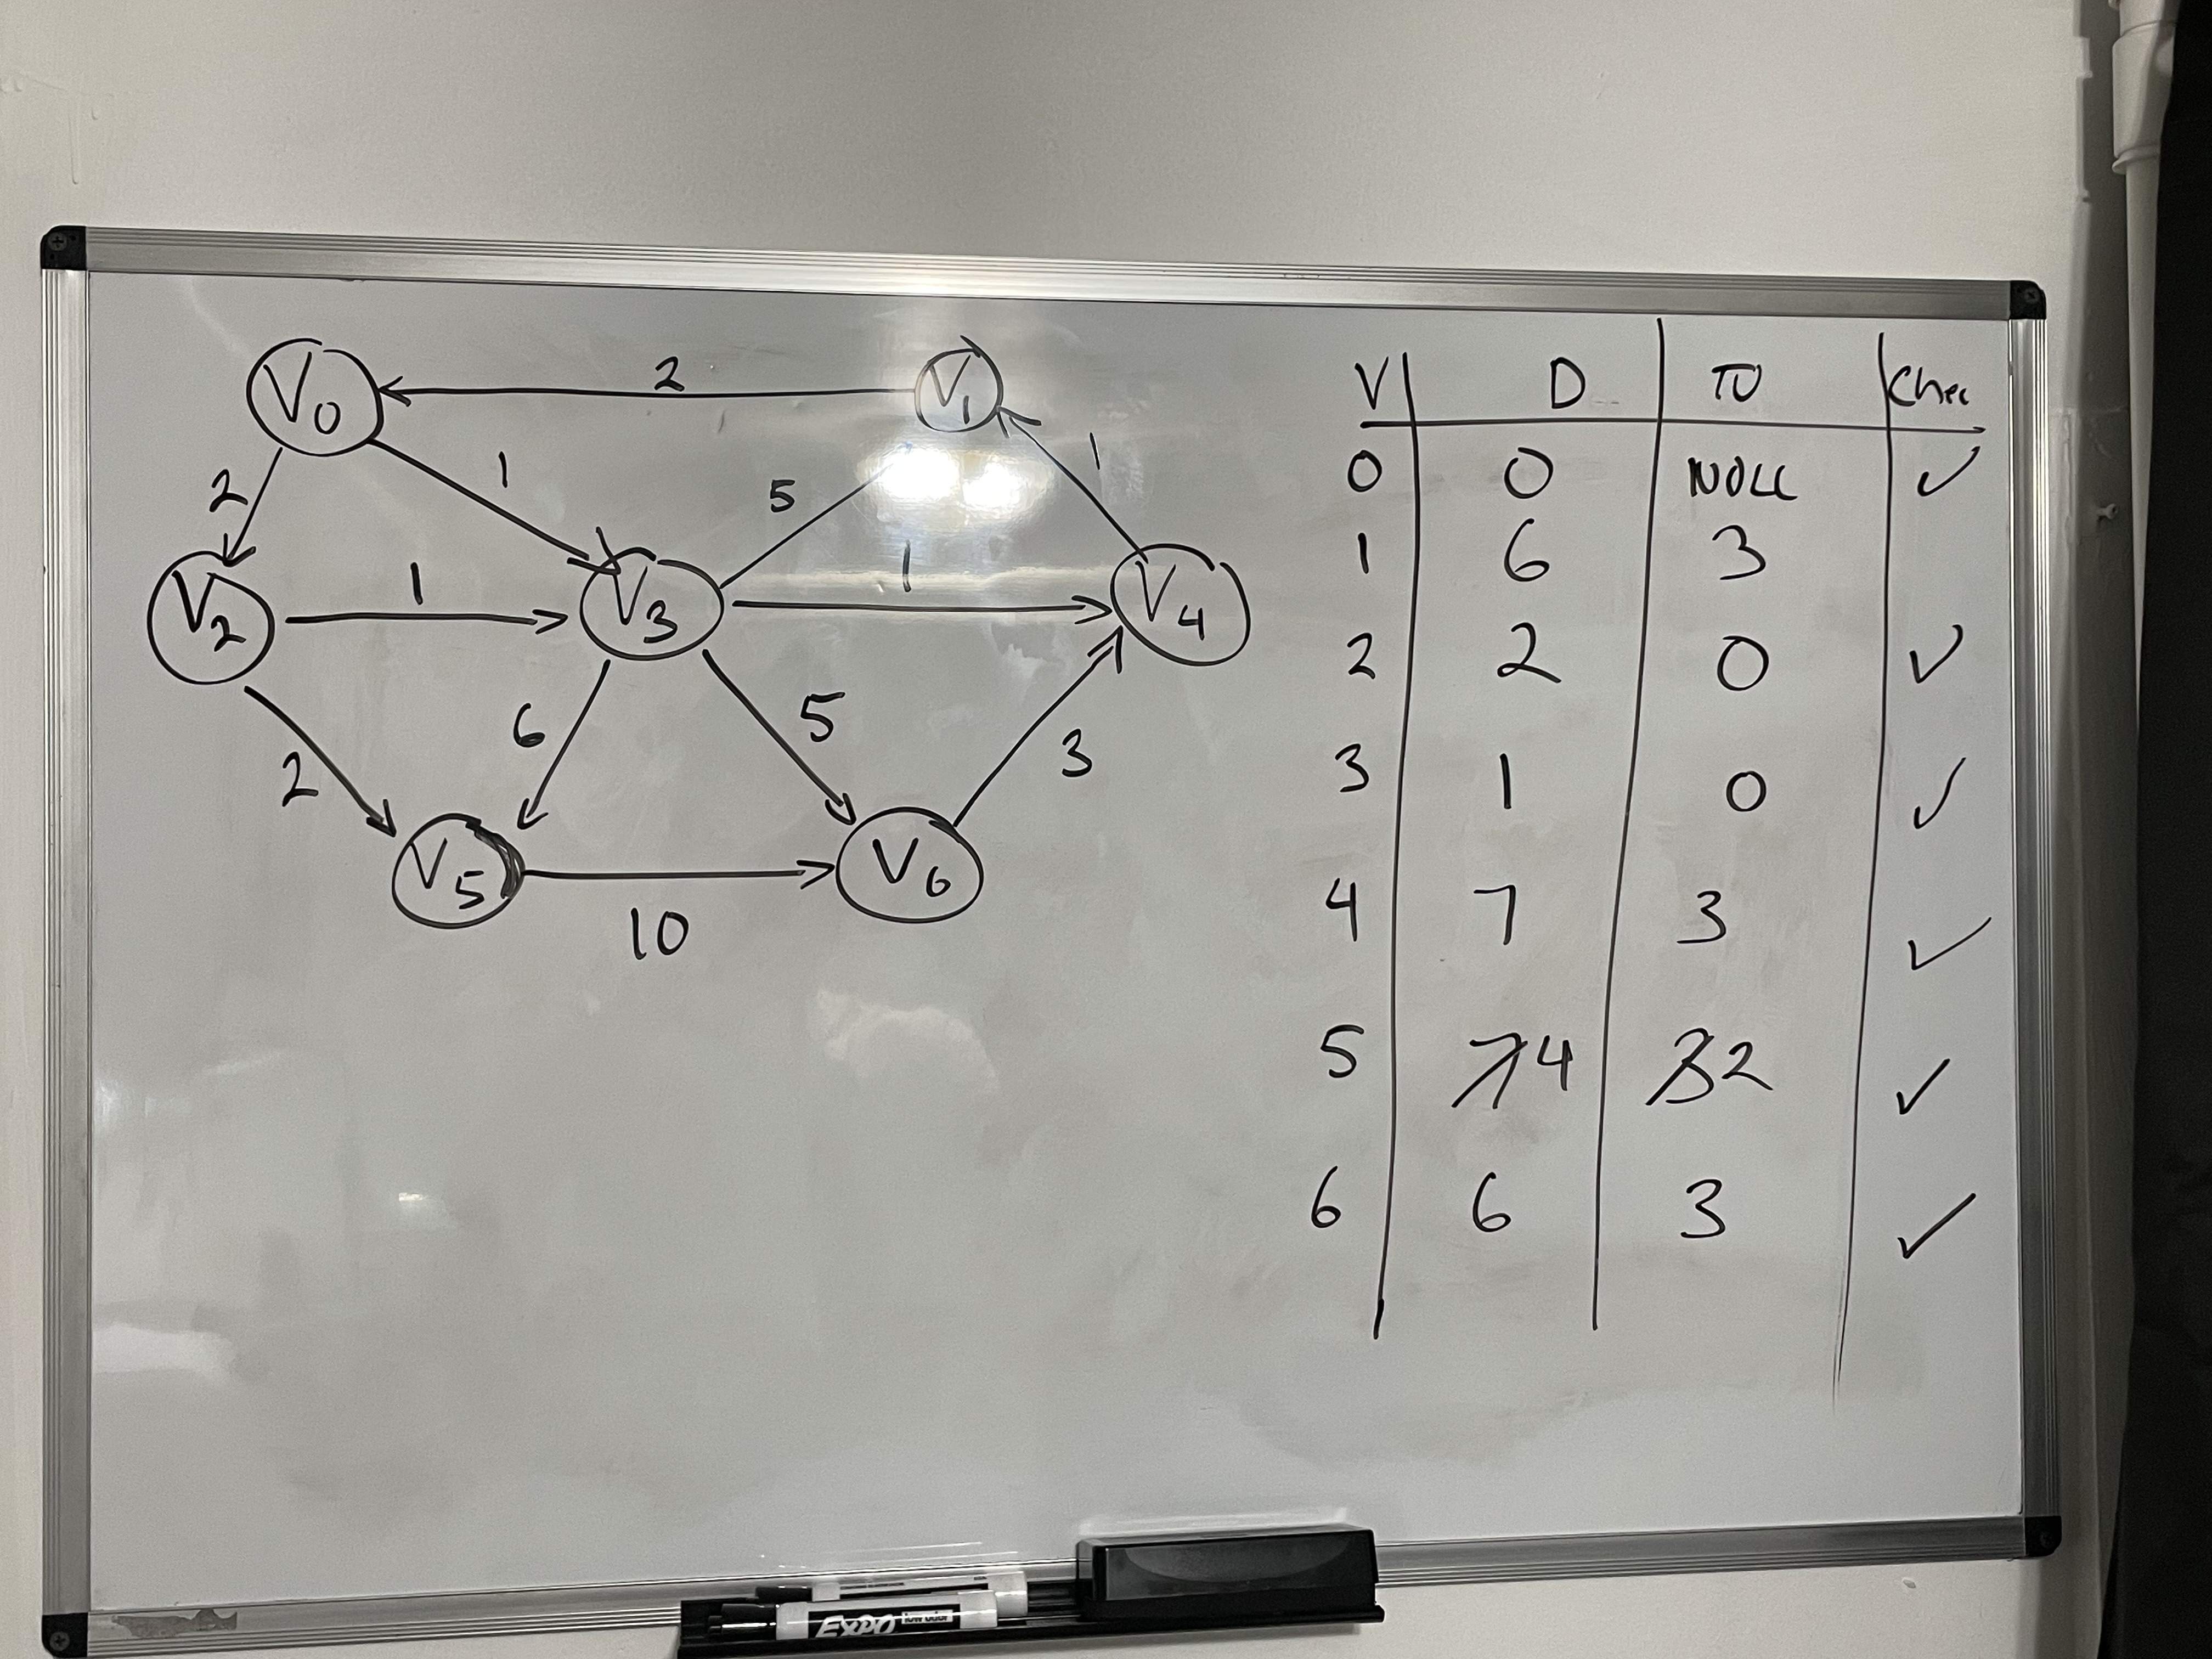 V0 2 V1
2 1 5 1
V2 1 V3 1 V4
2 6 5 3
V5 10 V6
V D TO Chec
0 0 NULL ✓
1 6 3
2 2 0 ✓
3 1 0 ✓
4 7 3 ✓
5 7 4 3 2 ✓
6 6 3 ✓
EXPO low odor